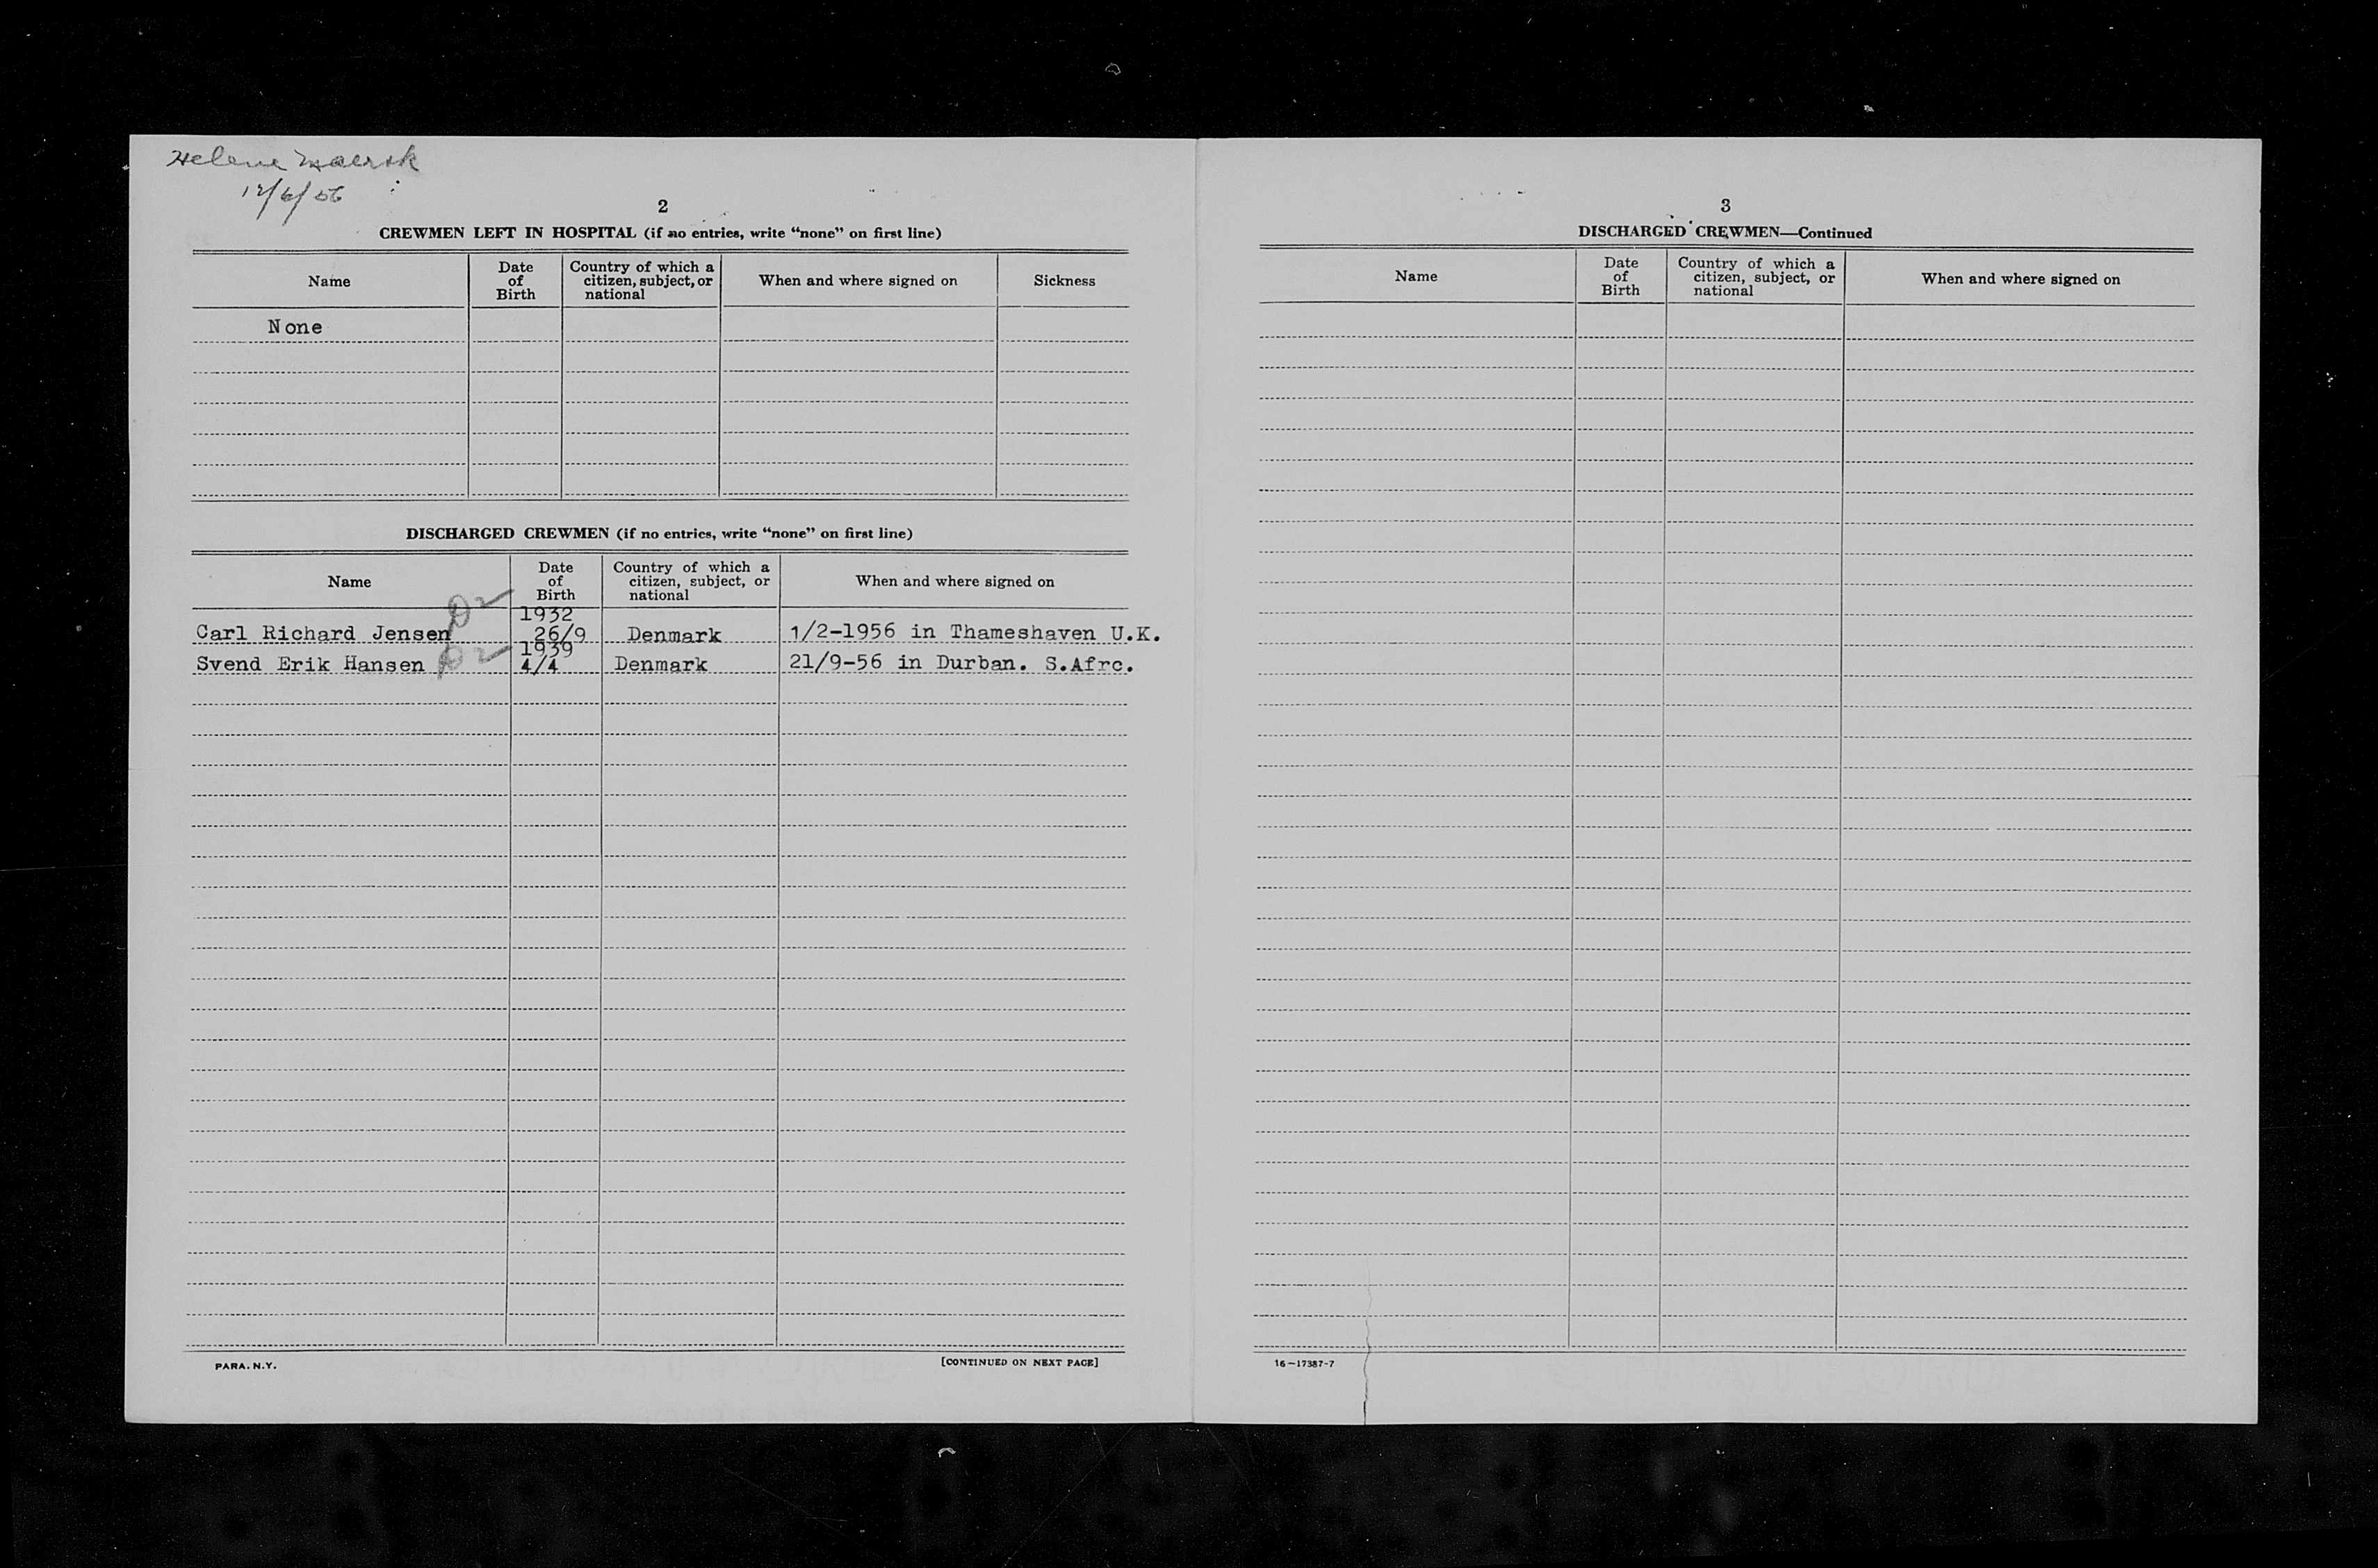 Helene Maersk
12/6/56
2
CREWMEN LEFT IN HOSPITAL (if no entries, write “none” on first line)
Name
Date of Birth
Country of which a citizen, subject, or national
When and where signed on
Sickness
None
DISCHARGED CREWMEN (if no entries, write “none” on first line)
Name
Date of Birth
Country of which a citizen, subject, or national
When and where signed on
Carl Richard Jensen 1932 26/9 Denmark 1/2-1956 in Thameshaven U.K.
Svend Erik Hansen 1939 4/4 Denmark 21/9-56 in Durban. S.Afrc.
PARA. N.Y.
[CONTINUED ON NEXT PAGE]
3
DISCHARGED CREWMEN—Continued
Name
Date of Birth
Country of which a citizen, subject, or national
When and where signed on
16—17387-7